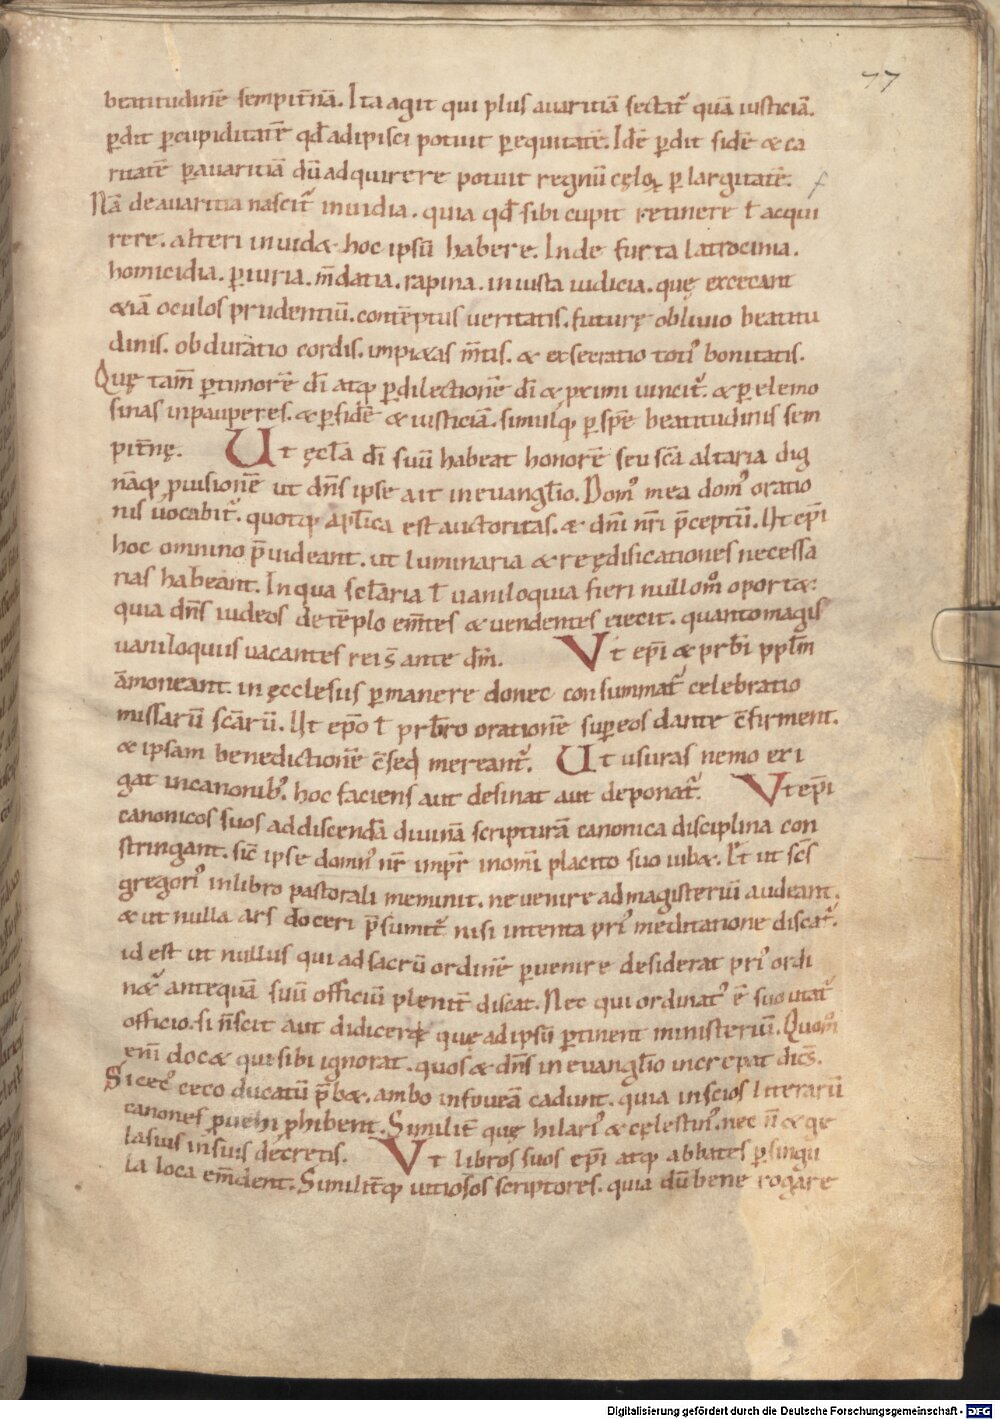 77
beatitudinē sempit̄nā. Ita agit qui plus auaritiā sectat᷑ quā iusticiā.
ꝑdit ꝑcupiditatē qđ adipisci potuit ꝑ equitatē. Idē ꝑdit fidē & ca
ritatē ꝑ auaritiā dū adquirere potuit regnū cęloꝝ ꝑ largitatē.
Nā de auaritia nascit᷑ inuidia. quia qđ sibi cupit retinere ł acqui
rere. alteri inuid& hoc ipsū habere. Inde furta latrocinia.
homicidia. ꝑiuria. m̄datia. rapina. iniusta iudicia. quę excecant
&iā oculos prudentiū. contēptus ueritatis. futurę obliuio beatitu
dinis. obduratio cordis. impi&as m̄tis. & exsecratio toti᷒ bonitatis.
Quę tam̄ ꝑ timorē dī atqꝫ ꝑ dilectionē dī & ꝓximi uincit᷑. & ꝑ elemo
sinas in pauperes. & ꝑ fidē & iusticiā. simulqꝫ ꝑ spē beatitudinis sem
pit̄nę. Ut ęcła dī suū habeat honorē seu scā altaria dig
nāqꝫ ꝓuisionē ut dn̄s ipse ait in euangło. Dom᷒ mea dom᷒ oratio
nis uocabit᷑. quotqꝫ apłica est auctoritas. & dn̄i nr̄i p̄ceptū. Ut ep̄i
hoc omnino p̄uideant. ut luminaria & reędificationes necessa
rias habeant. In qua sc̄laria ł uaniloquia fieri nullom᷒ oport&.
quia dn̄s iudeos de tēplo em̄tes & uendentes eiecit. quanto magis
uaniloquiis uacantes reis̄ ante dm̄. Vt ep̄i & prb̄i ppłm
āmoneant. in ęcclesiis ꝑmanere donec consummat᷑ celebratio
missarū scārū. Ut ep̄o ł prb̄ro orationē suꝑ eos dante c̄firment.
& ipsam benedictionē c̄seq̄ mereant᷑. Ut usuras nemo exi
gat in canonib᷒. hoc faciens aut desinat aut deponat᷑. Vt ep̄i
canonicos suos ad discendā diuinā scripturā canonica disciplina con
stringant. sic̄ ipse domn᷒ nr̄ imp̄r inom̄i placito suo iub&. Et ut sc̄s
gregori᷒ in libro pastorali meminit. ne uenire ad magisteriū audeant.
& ut nulla ars doceri p̄sumit᷑ nisi intenta pri᷒ meditatione discat᷑.
id est ut nullus qui ad sacrū ordinē ꝑuenire desiderat pri᷒ ordi
n&᷑ antequā suū officiū plenit̄ discat. Nec qui ordinat᷒ ē suo utat᷑
officio. si n̄scit aut didicerit quę ad ipsū ꝑtinent ministeriū. Quom᷒
eni̅ doc& qui sibi ignorat. quos & dn̄s in euangło increpat dic̄s.
Si cec᷒ ceco ducatū p̄b&. ambo in foueā cadunt. quia inscios literarū
canones ꝓuehi ꝓhibent. Similit̄ quę hilari᷒ & cęlestin᷒. nec n̄ & ge
lasius in suis decretis. Vt libros suos ep̄i atqꝫ abbates ꝑ singu
la loca em̄dent. Similit̄qꝫ uitiosos scriptores. quia dū bene rogare
Digitalisierung gefördert durch die Deutsche Forschungsgemeinschaft - DFG